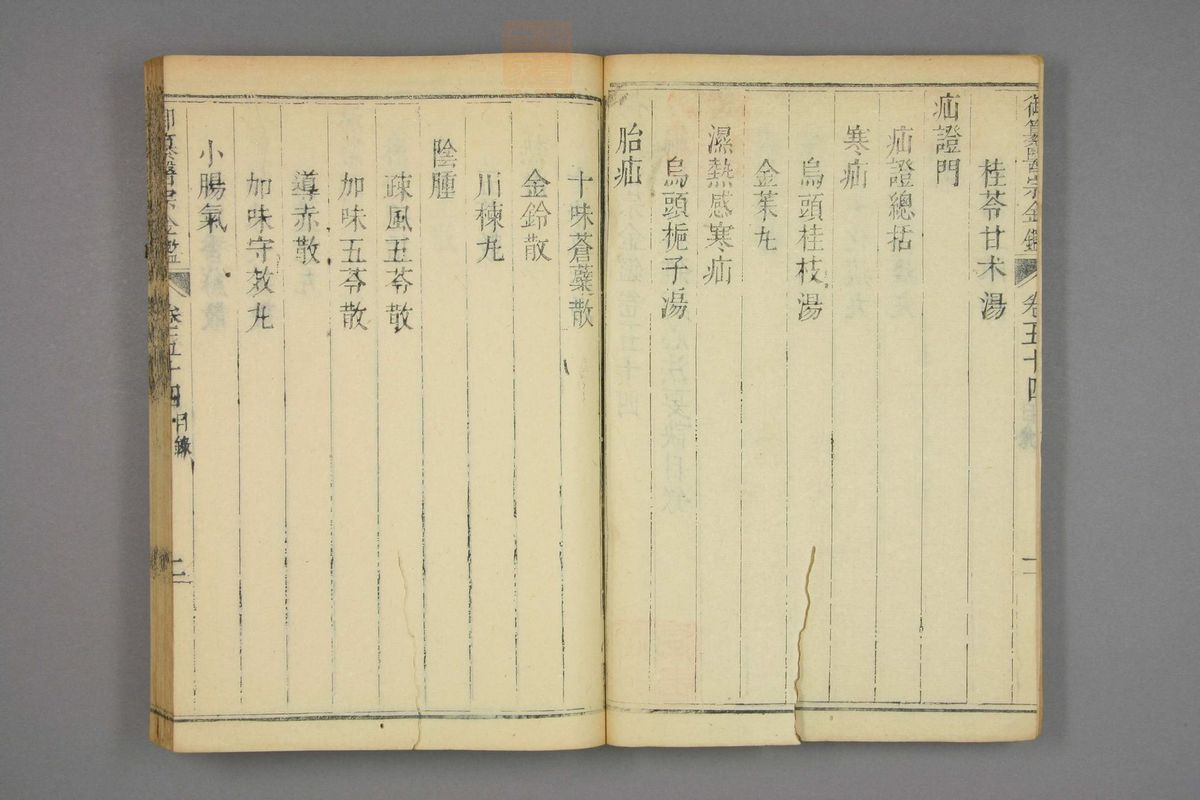 御纂醫宗金鑑 卷五十四
桂苓甘朮湯
疝證門
疝證總括
寒疝
烏頭桂枝湯
金茱丸
濕熱感寒疝
烏頭梔子湯
胎疝
十味蒼蘗散
金鈴散
川楝丸
陰腫
疎風五苓散
加味五苓散
導赤散
加味守效丸
小腸氣
御纂醫宗金鑑 卷五十四 目錄 二